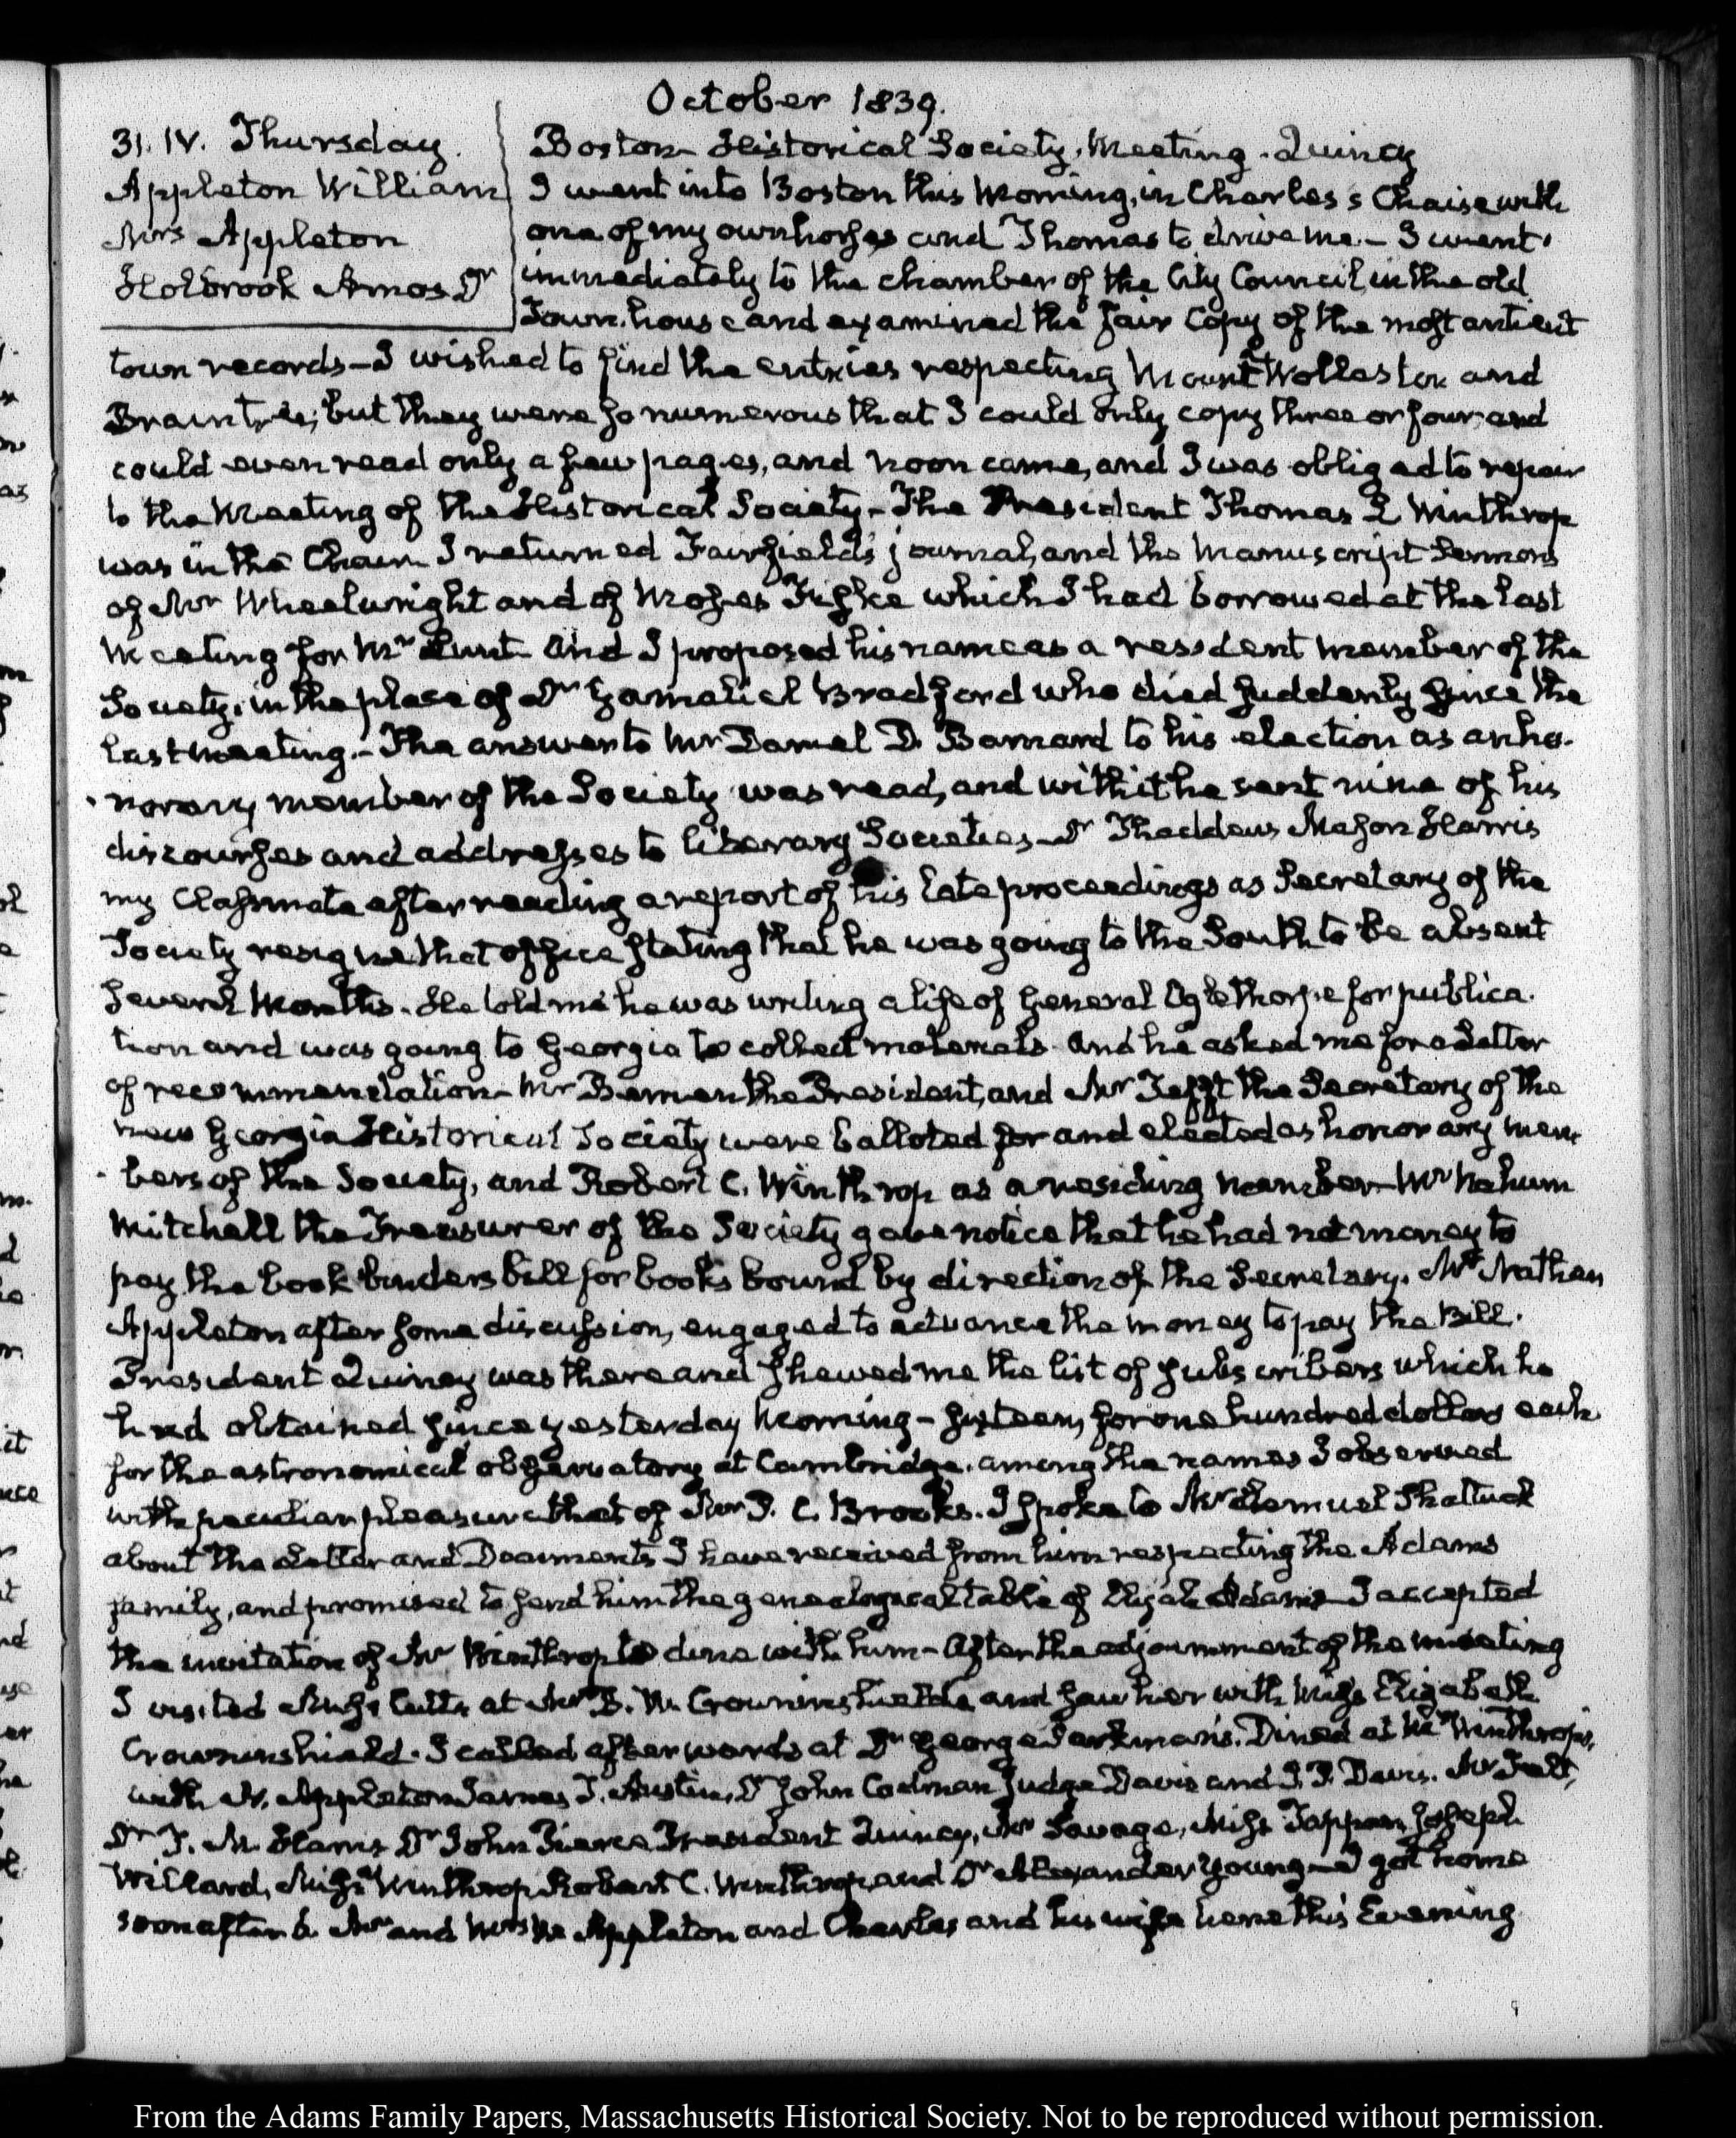 October 1839.
31. IV. Thursday.
Appleton William
Mrs Appleton
Holbrook Amos Dr
Boston Historical Society, Meeting. Quincy
I went into Boston this Morning, in Charles's Chaise with
one of my own horses and Thomas to drive me. — I went
immediately to the chamber of the City Council in the old
Town-house and examined the fair Copy of the most antient
town records — I wished to find the entries respecting Mount Wollaston and
Braintree; but they were so numerous that I could only copy three or four, and
could even read only a few pages, and noon came, and I was obliged to repair
to the Meeting of the Historical Society — The President Thomas L. Winthrop
was in the Chair. I returned Fairfield's journal, and the Manuscript Sermons
of Mr Wheelwright and of Moses Fiske which I had borrowed at the last
Meeting for Mr Lunt. And I proposed his name as a resident member of the
Society, in the place of Dr Gamaliel Bradford who died suddenly since the
last meeting. — The answer to Mr Daniel D. Barnard to his election as an ho-
norary member of the Society was read, and with it he sent nine of his
discourses and addresses to literary Societies — Dr Thaddeus Mason Harris
my Classmate after reading a report of his late proceedings as Secretary of the
Society resigned that office stating that he was going to the South to be absent
several Months. He told me he was writing a life of General Oglethorpe for publica-
tion and was going to Georgia to collect materials. And he asked me for a Letter
of recommendation — Mr Berrien the President, and Mr Tefft the Secretary of the
new Georgia Historical Society were balloted for and elected as honorary mem-
bers of the Society, and Robert C. Winthrop as a residing member — Mr Nahum
Mitchell the Treasurer of the Society gave notice that he had not money to
pay the book binders bill for books bound by direction of the Secretary. Mr Nathan
Appleton after some discussion, engaged to advance the money to pay the Bill.
President Quincy was there and shewed me the list of subscribers which he
had obtained since yesterday Morning — sixteen, for one hundred dollars each
for the astronomical observatory at Cambridge. among the names I observed
with peculiar pleasure that of Mr P. C. Brooks. I spoke to Mr Lemuel Shattuck
about the Letter and Documents I have received from him respecting the Adams
family, and promised to send him the genealogical table of Elijah Adams — I accepted
the invitation of Mr Winthrop to dine with him — After the adjournment of the meeting
I visited Miss Cutts at Mr B. W. Crowninshield's and saw her with Miss Elizabeth
Crowninshield. I called afterwards at Dr George Parkman's. Dined at Mr Winthrop's,
with N. Appleton James T. Austin, Dr John Codman Judge Davis and I. P. Davis. Mr Felt,
Dr T. M. Harris Dr John Pierce President Quincy, Mr Savage, Miss Tappan, Joseph
Willard, Miss Winthrop Robert C. Winthrop, and Dr Alexander Young — I got home
soon after 6. Mr and Mrs W Appleton and Charles and his wife here this Evening
From the Adams Family Papers, Massachusetts Historical Society. Not to be reproduced without permission.